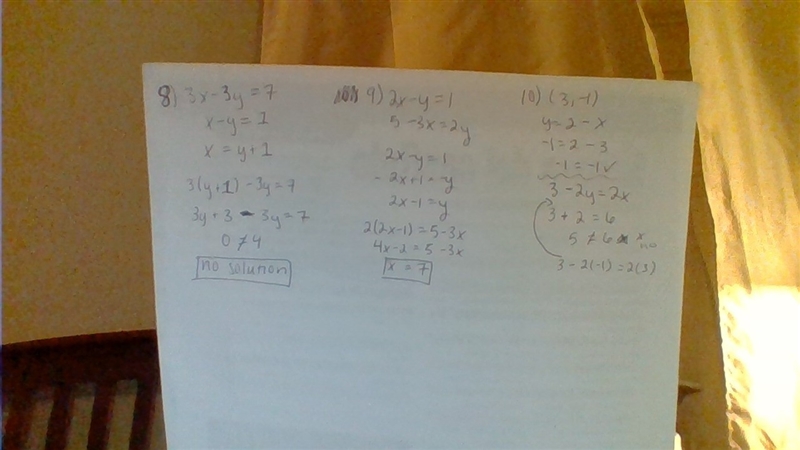 8) 3x - 3y = 7
x - y = 1
x = y + 1
3(y + 1) - 3y = 7
3y + 3 - 3y = 7
0 ≠ 4
no solution
9) 2x - y = 1
5 - 3x = 2y
2x - y = 1
- 2x + 1 = -y
2x - 1 = y
2(2x - 1) = 5 - 3x
4x - 2 = 5 - 3x
x = 7
10) (3, -1)
y = 2 - x
-1 = 2 - 3
-1 = -1 ✓
3 - 2y = 2x
3 + 2 = 6
5 ≠ 6 x
no
3 - 2(-1) = 2(3)